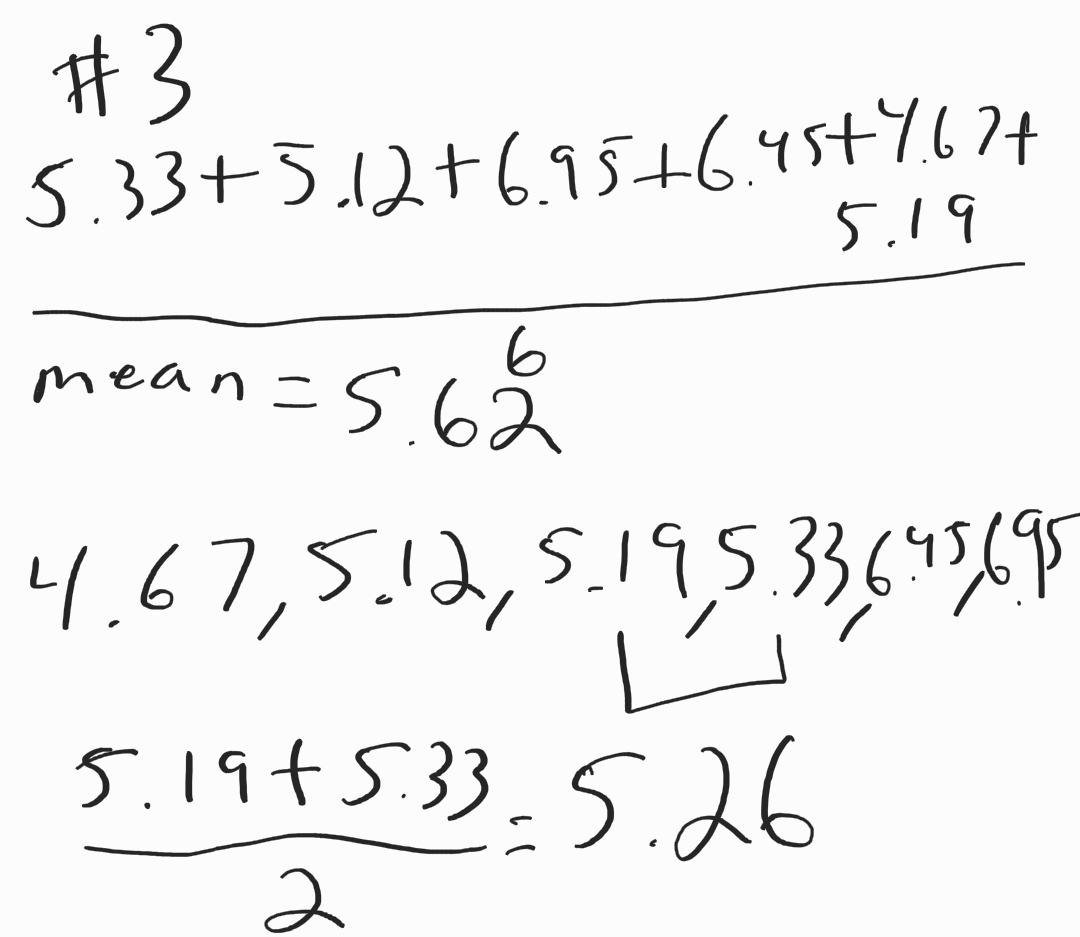 #3
5.33+5.12+6.95+6.45+4.67+
5.19
6
mean = 5.62
4.67, 5.12, 5.19, 5.33, 6.45, 6.95
5.19+5.33
2
= 5.26